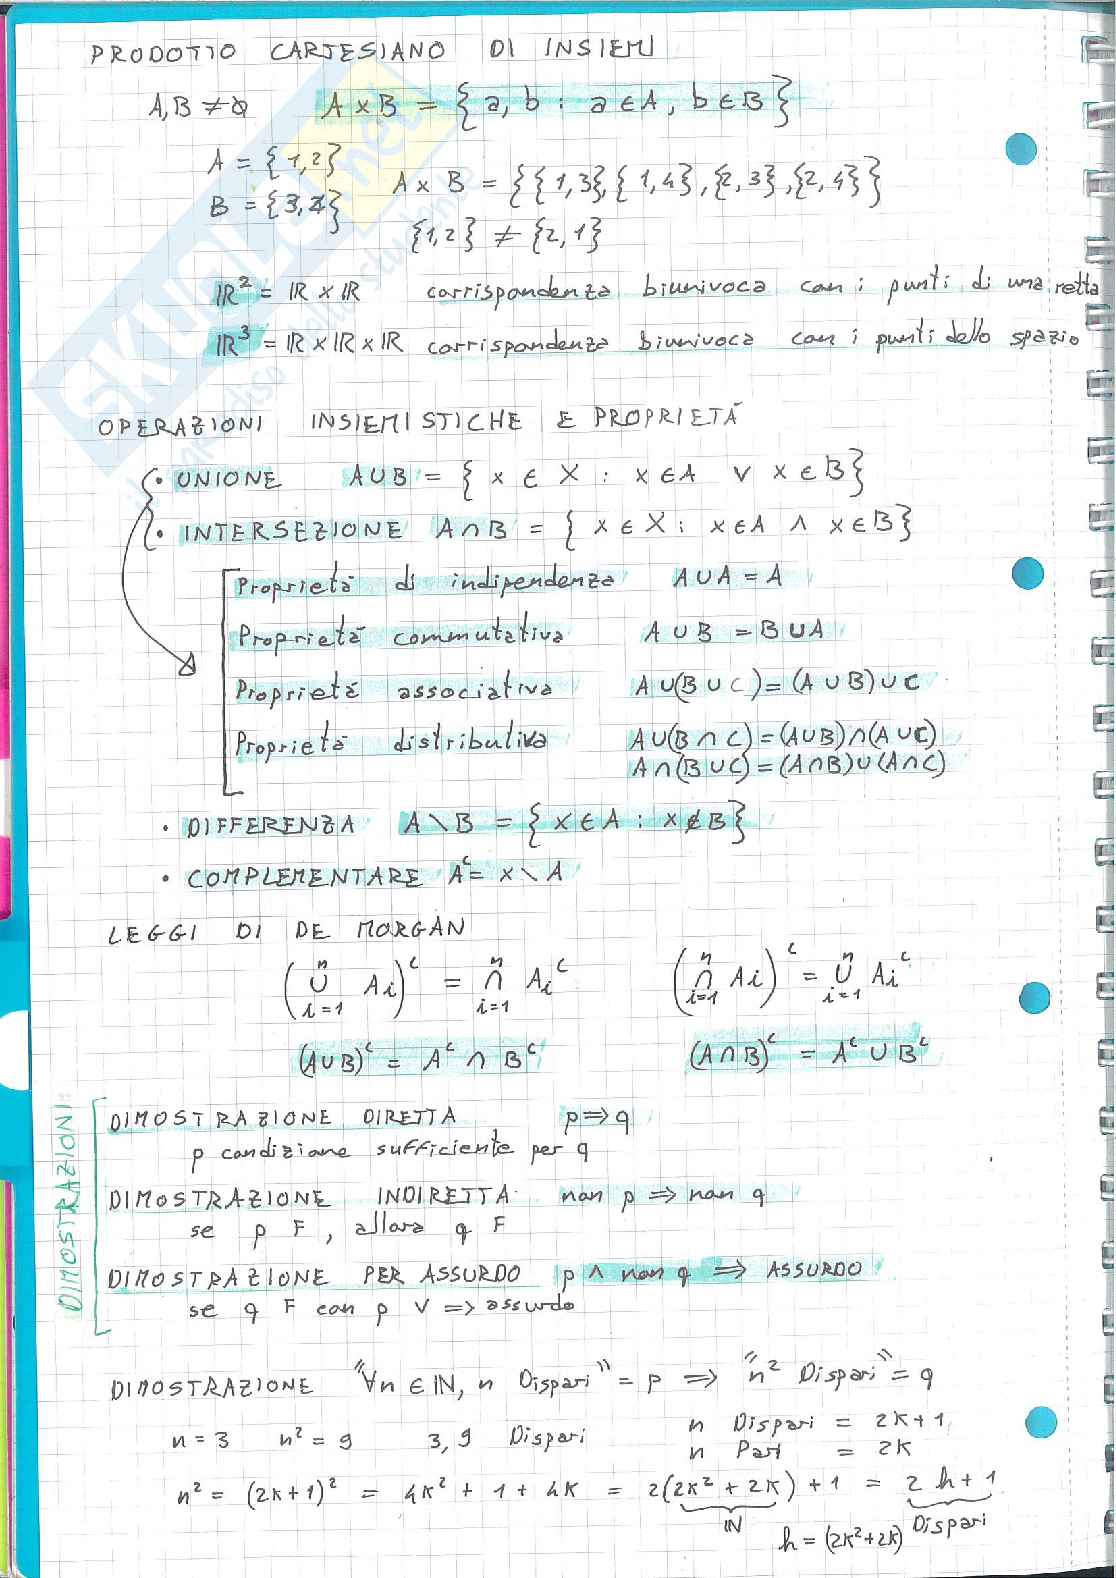 PRODOTTO CARTESIANO DI INSIEMI
A,B ≠ ∅ A x B = { a, b : a ∈ A, b ∈ B }
A = {1,2}
B = {3,4}
A x B = {{1,3},{1,4},{2,3},{2,4}}
{1,2} ≠ {2,1}
ℝ² = ℝ x ℝ corrispondenza biunivoca con i punti di una retta
ℝ³ = ℝ x ℝ x ℝ corrispondenza biunivoca con i punti dello spazio
OPERAZIONI INSIEMISTICHE E PROPRIETÀ
• UNIONE A ∪ B = { x ∈ X : x ∈ A ∨ x ∈ B }
• INTERSEZIONE A ∩ B = { x ∈ X : x ∈ A ∧ x ∈ B }
Proprietà di indipendenza A ∪ A = A
Proprietà commutativa A ∪ B = B ∪ A
Proprietà associativa A ∪ (B ∪ C) = (A ∪ B) ∪ C
Proprietà distributiva A ∪ (B ∩ C) = (A ∪ B) ∩ (A ∪ C)
A ∩ (B ∪ C) = (A ∩ B) ∪ (A ∩ C)
• DIFFERENZA A \ B = { x ∈ A : x ∉ B }
• COMPLEMENTARE Aᶜ = X \ A
LEGGI DI DE MORGAN
(⋃ⁿᵢ₌₁ Ai)ᶜ = ⋂ⁿᵢ₌₁ Aiᶜ (⋂ⁿᵢ₌₁ Ai)ᶜ = ⋃ⁿᵢ₌₁ Aiᶜ
(A ∪ B)ᶜ = Aᶜ ∩ Bᶜ (A ∩ B)ᶜ = Aᶜ ∪ Bᶜ
DIMOSTRAZIONI
DIMOSTRAZIONE DIRETTA p ⇒ q
p condizione sufficiente per q
DIMOSTRAZIONE INDIRETTA non p ⇒ non q
se p F, allora q F
DIMOSTRAZIONE PER ASSURDO p ∧ non q ⇒ ASSURDO
se q F con p V ⇒ assurdo
DIMOSTRAZIONE "∀n ∈ ℕ, n Dispari" = p ⇒ "n² Dispari" = q
n = 3 n² = 9 3, 9 Dispari
n Dispari = 2k+1
n Pari = 2k
n² = (2k+1)² = 4k² + 1 + 4k = 2(2k² + 2k) + 1 = 2 h + 1
ℕ Dispari
h = (2k²+2k)
SKUOLA.net
il paradiso dello studente